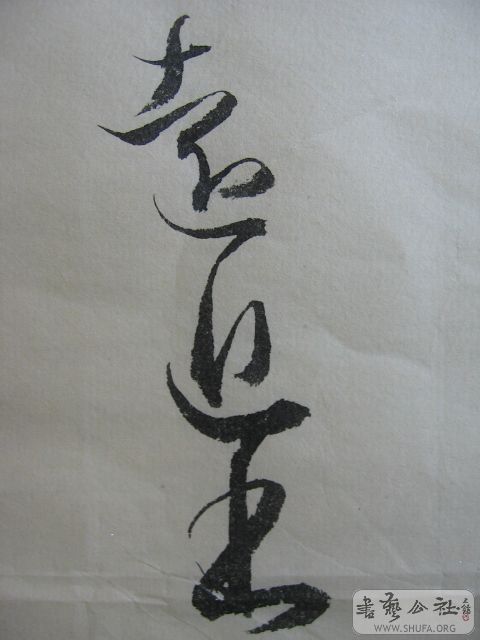 遠近王
書藝公社
WWW.SHUFA.ORG